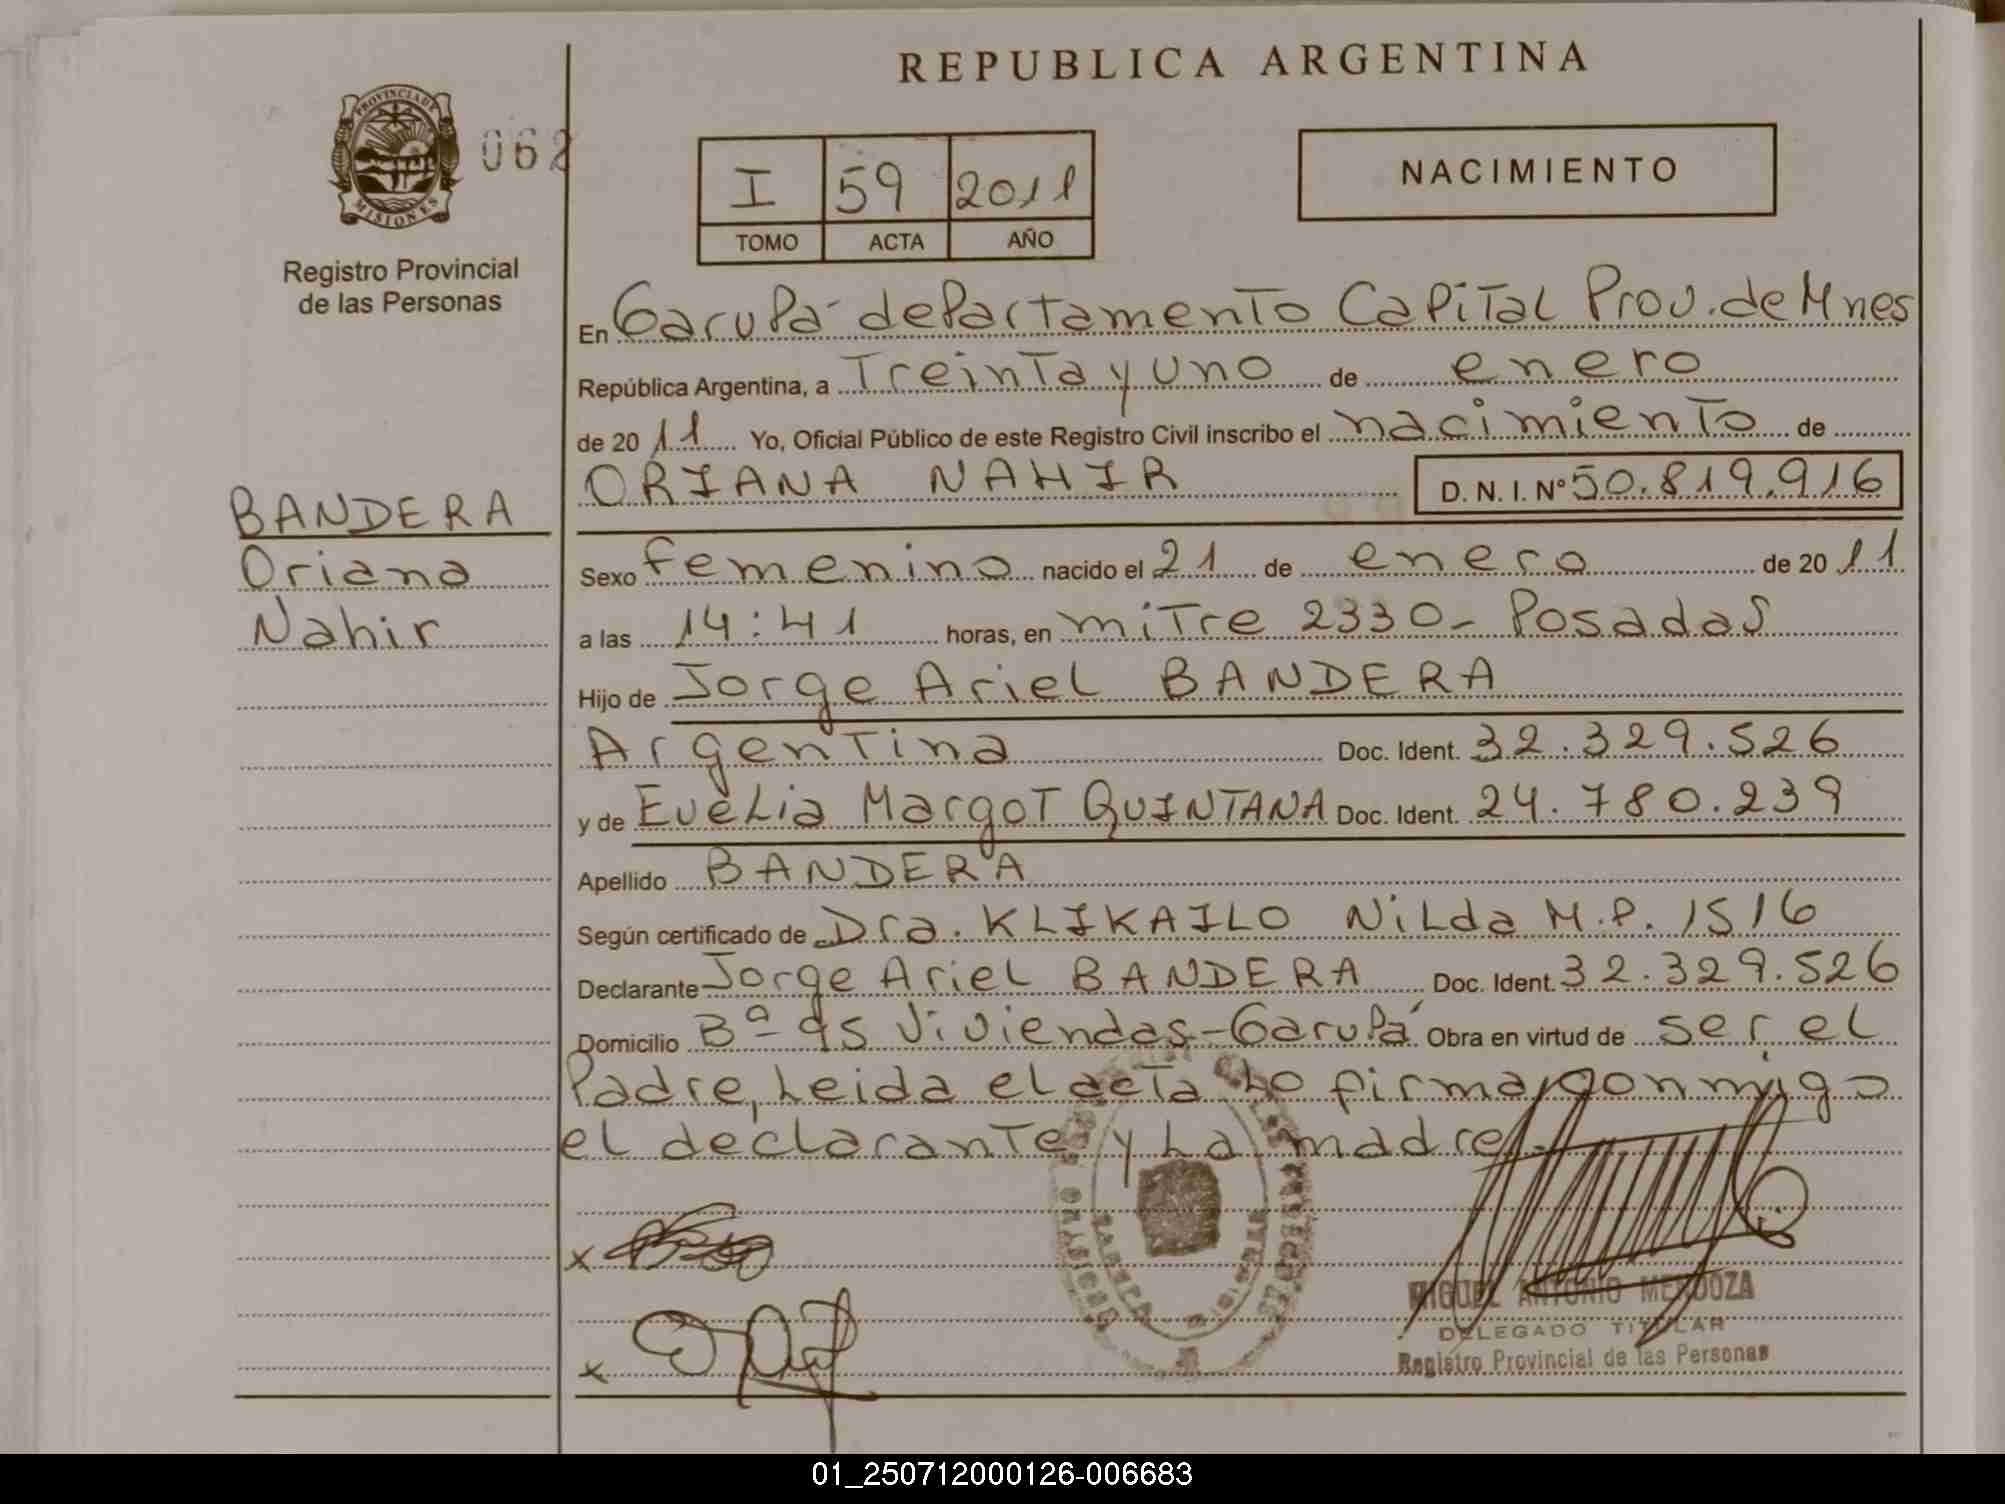 REPUBLICA ARGENTINA
PROVINCIA DE
MISIONES
062
Registro Provincial
de las Personas
I 59 2011
TOMO ACTA AÑO
NACIMIENTO
En Garupá departamento Capital Prov. de Mnes
República Argentina, a Treinta y uno de enero
de 20 11 Yo, Oficial Público de este Registro Civil inscribo el nacimiento de
ORIANA NAHIR D. N. I. Nº 50.819.916
BANDERA
Oriana
Nahir
Sexo femenino nacido el 21 de enero de 20 11
a las 14:41 horas, en mitre 2330- Posadas
Hijo de Jorge Ariel BANDERA
Argentina Doc. Ident. 32.329.526
y de Evelia Margot QUINTANA Doc. Ident. 24.780.239
Apellido BANDERA
Según certificado de Dra. KLIKAILO Nilda M.P. 1516
Declarante Jorge Ariel BANDERA Doc. Ident. 32.329.526
Domicilio Bº 95 Viviendas-Garupá Obra en virtud de ser el
Padre, Leida el acta Lo firma conmigo
el declarante y La madre.-
x
x
MIGUEL ANTONIO MENDOZA
DELEGADO TITULAR
Registro Provincial de las Personas
01_250712000126-006683